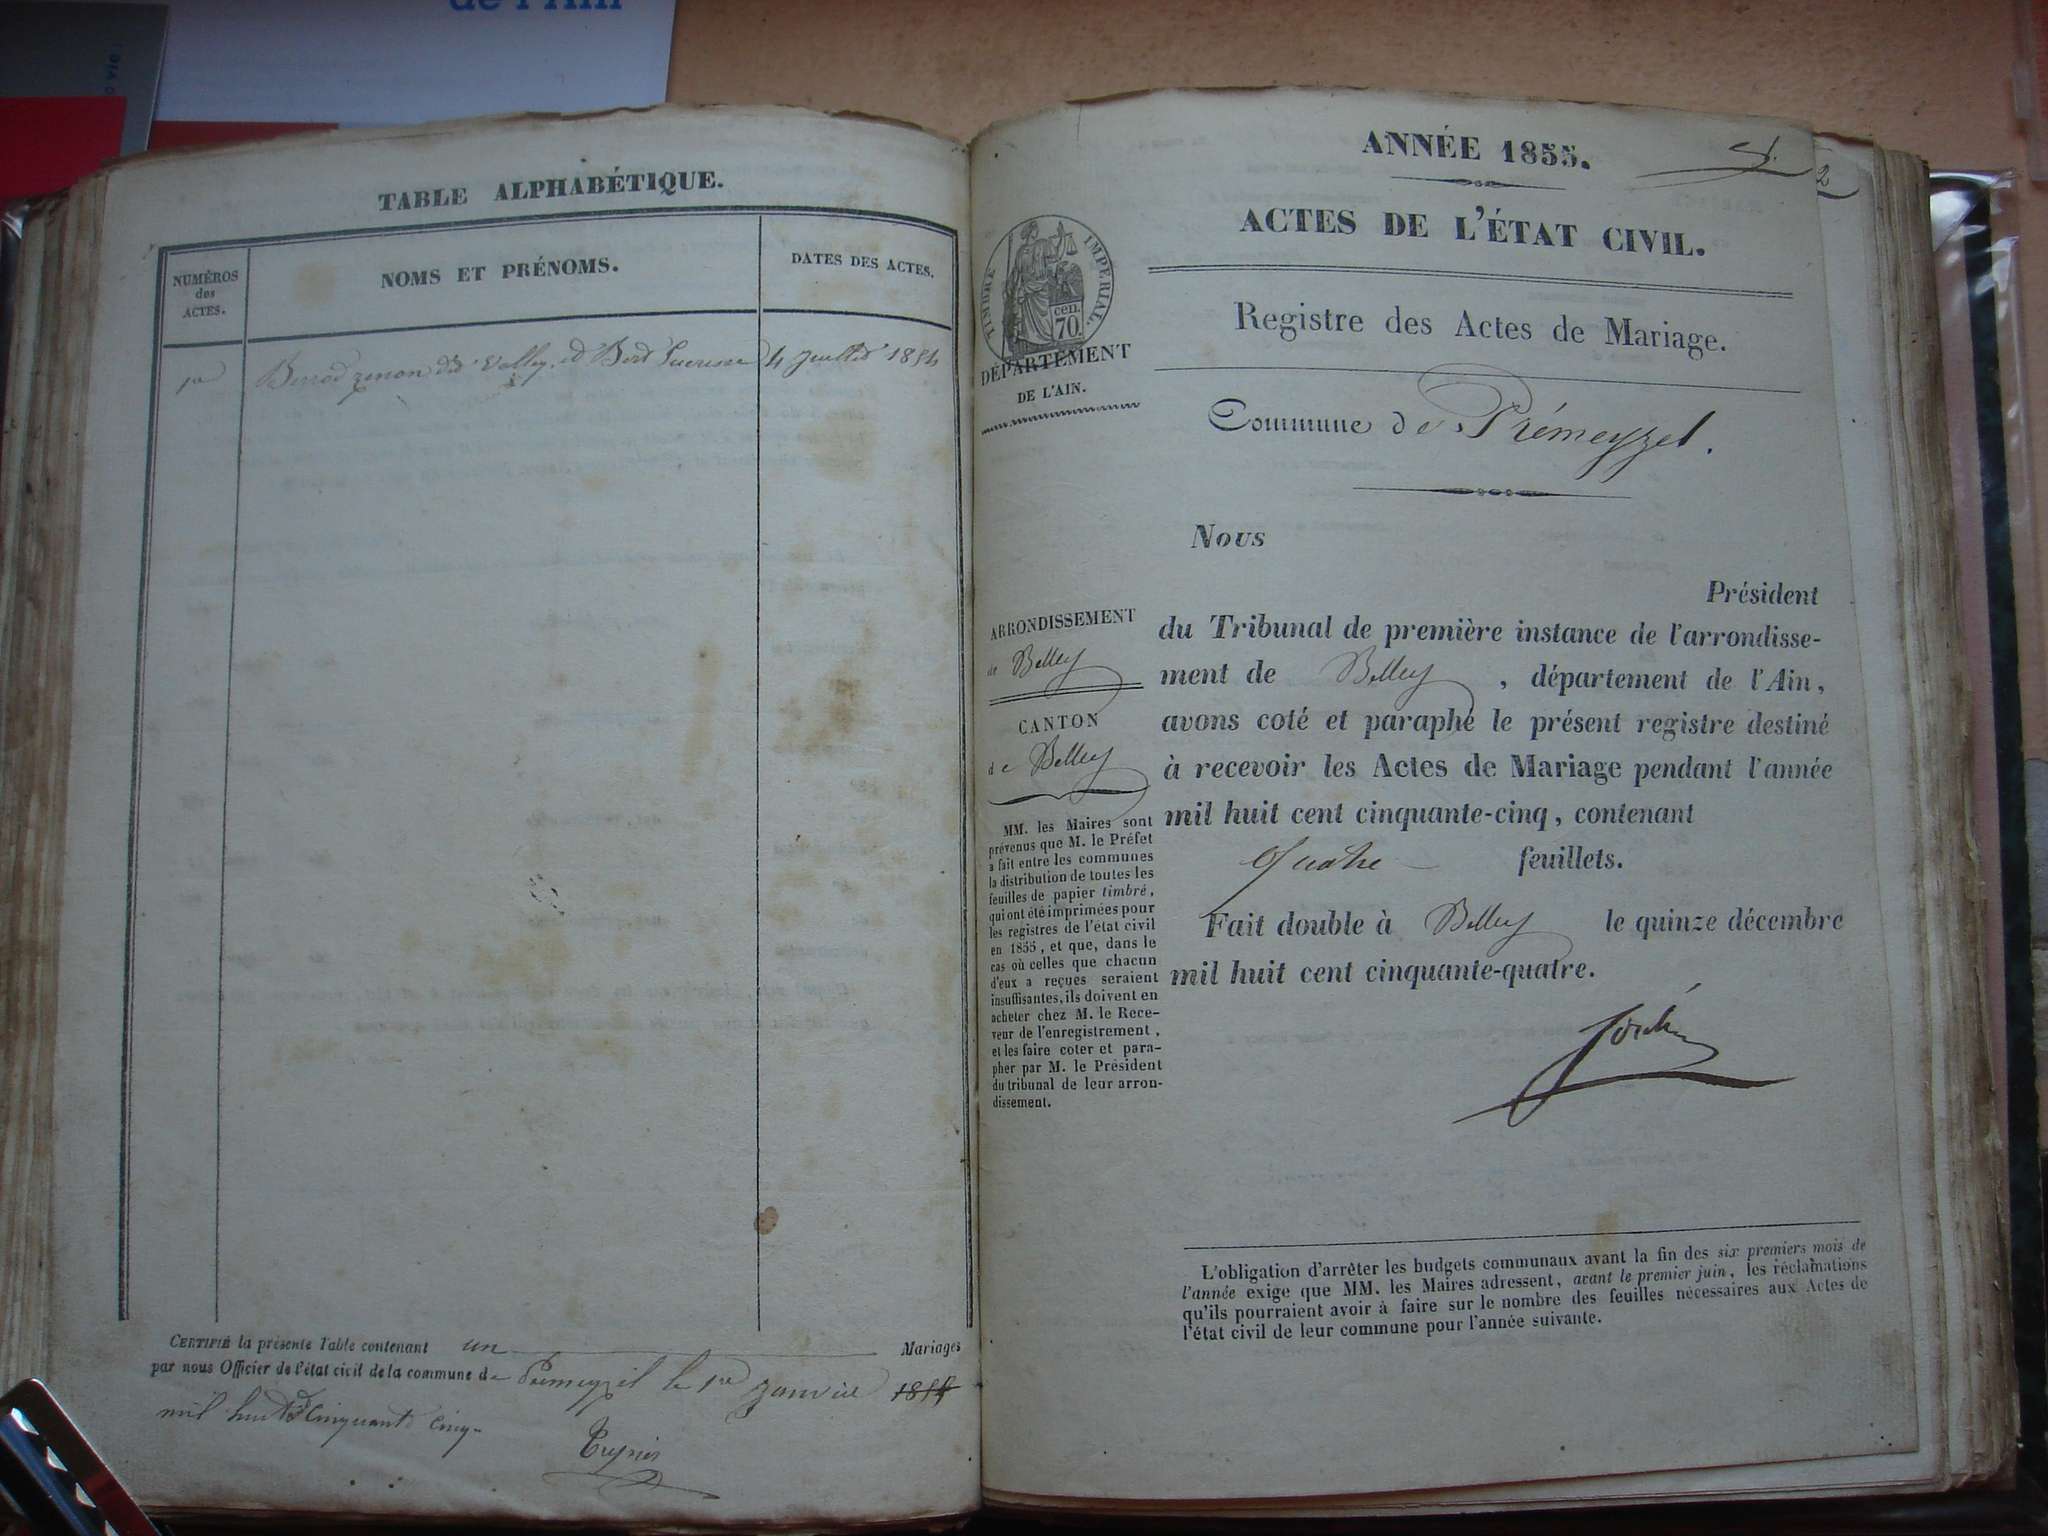 de l'Ain
o vie
TABLE ALPHABÉTIQUE.
NUMÉROS
des
ACTES.
NOMS ET PRÉNOMS.
DATES DES ACTES.
1er
4 Juillet 1854
CERTIFIÉ la présente Table contenant un Mariages
par nous Officier de l'état civil de la commune de Prémeyzel le 1er janvier 1854
mil huit ct cinquante cinq.
ANNÉE 1855.
2
ACTES DE L'ÉTAT CIVIL.
TIMBRE IMPÉRIAL.
cen.
70.
DÉPARTEMENT
DE L'AIN.
Registre des Actes de Mariage.
Commune de Prémeyzel.
Nous
Président
du Tribunal de première instance de l'arrondisse-
ment de Belley, département de l'Ain,
avons coté et paraphé le présent registre destiné
à recevoir les Actes de Mariage pendant l'année
mil huit cent cinquante-cinq, contenant
Quatre feuillets.
Fait double à Belley le quinze décembre
mil huit cent cinquante-quatre.
ARRONDISSEMENT
de Belley
CANTON
de Belley
MM. les Maires sont
prévenus que M. le Préfet
a fait entre les communes
la distribution de toutes les
feuilles de papier timbré,
qui ont été imprimées pour
les registres de l'état civil
en 1855, et que, dans le
cas où celles que chacun
d'eux a reçues seraient
insuffisantes, ils doivent en
acheter chez M. le Rece-
veur de l'enregistrement,
et les faire coter et para-
pher par M. le Président
du tribunal de leur arron-
dissement.
L'obligation d'arrêter les budgets communaux avant la fin des six premiers mois de
l'année exige que MM. les Maires adressent, avant le premier juin, les réclamations
qu'ils pourraient avoir à faire sur le nombre des feuilles nécessaires aux Actes de
l'état civil de leur commune pour l'année suivante.